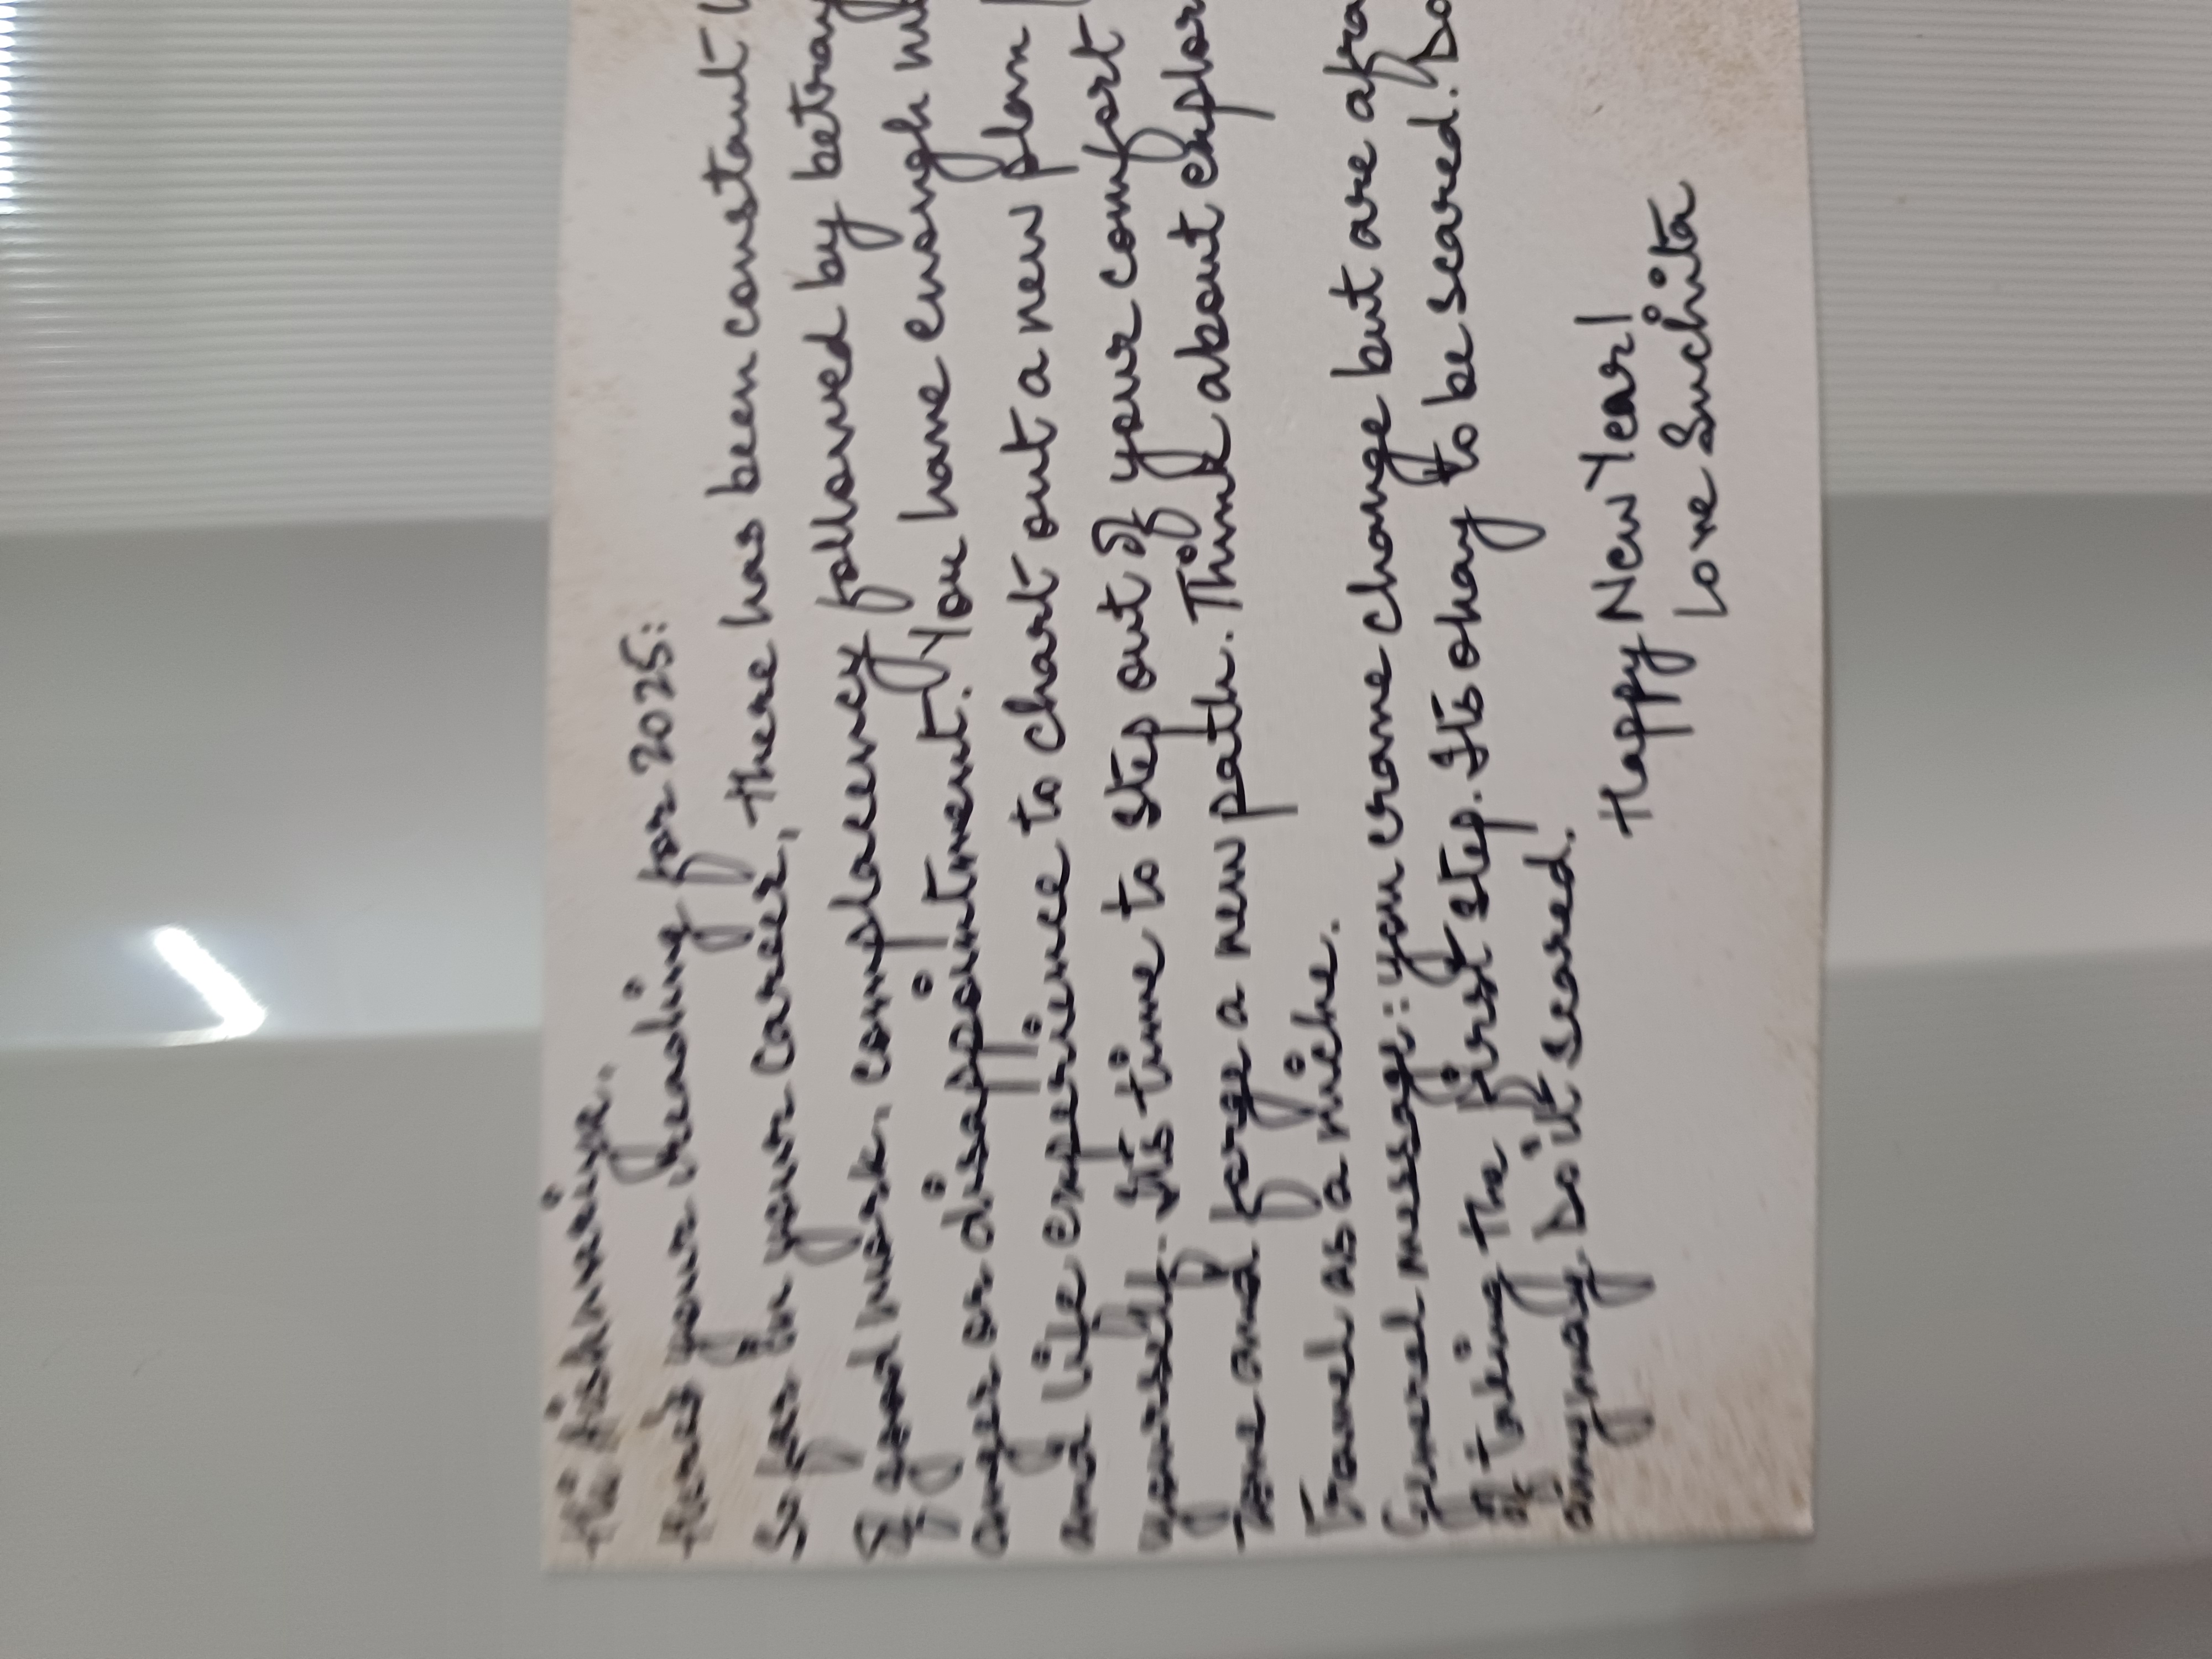 Hi Aishwarya.
Here's your reading for 2025:
So far in your career, there has been constant
of good work, complacency followed by
anger or disappointment. You have enough
and life experience to chart out a new plan
yourself. It's time to step out of your comfort
zone and forge a new path. Think about
Travel as a niche.
General message: you crave change but are
of taking the first step. It's okay to be scared. Do
anyway. Do it scared.
Happy New Year!
Love Suchita